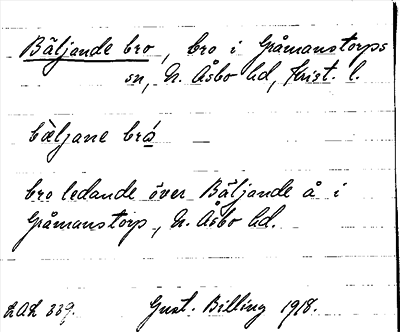 Bäljande bro, bro i Gråmanstorps
sn, N. Åsbo hd, Krist. l.
bæljane brá
bro ledande över Bäljande å i
Gråmanstorp, N. Åsbo hd.
LAL 339. Gust. Billing 1918.